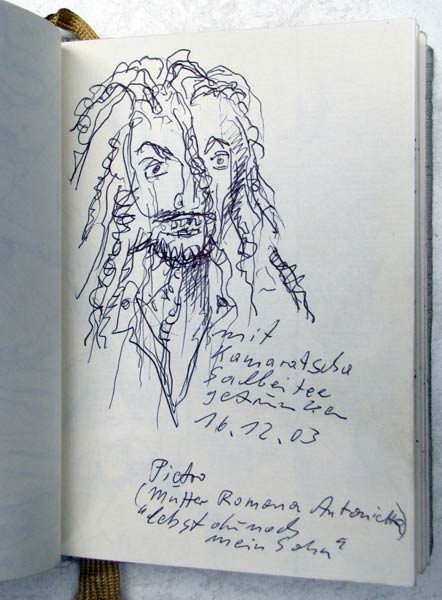 mit
Kamaratscha
Salbeitee
getrunken
16.12.03
Pietro
(Mutter Romana Antonietta)
"Lebst du noch
mein Sohn"